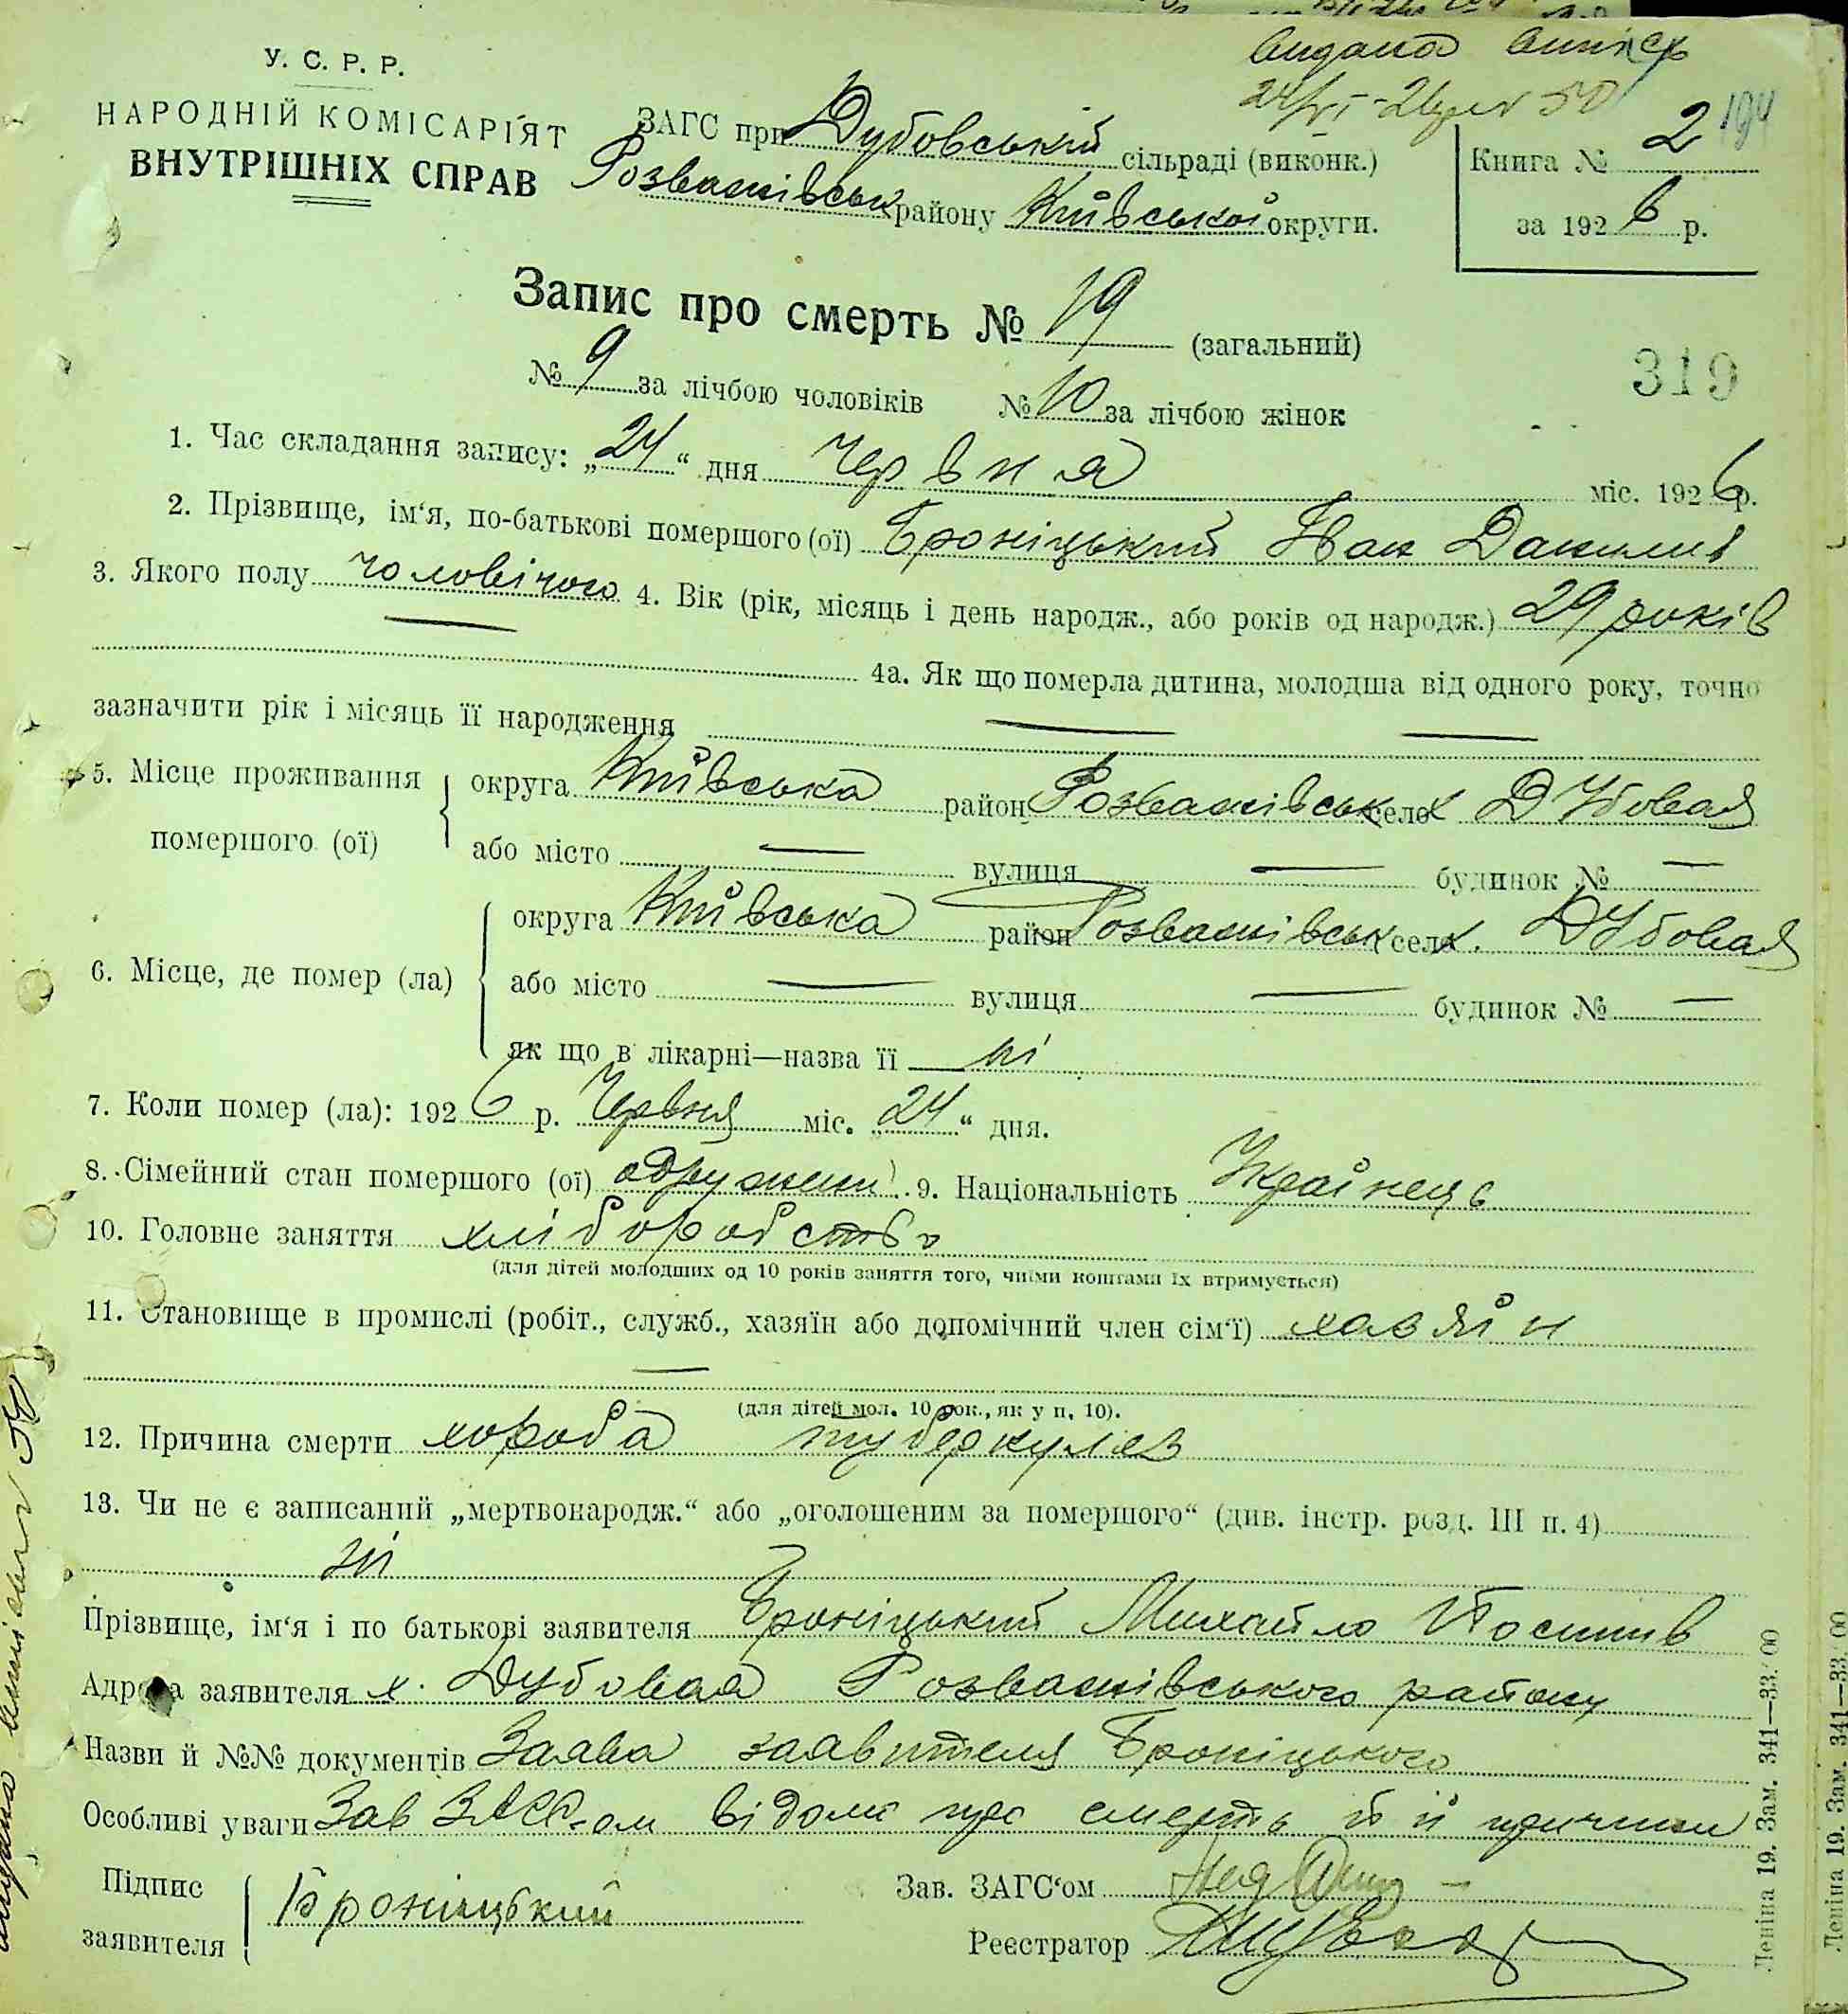 видана
У. С. Р. Р.
НАРОДНІЙ КОМІСАРІЯТ
ВНУТРІШНІХ СПРАВ
ЗАГС при Дубовській сільраді (виконк.)
Розважівськ району Київської округи.
Книга № 2
194
за 1926 р.
Запис про смерть № 19 (загальний)
№ 9 за лічбою чоловіків № 10 за лічбою жінок
319
1. Час складання запису: „24“ дня Червня міс. 1926 р.
2. Прізвище, ім‘я, по-батькові помершого (ої) Броніцький Іван Данилів
3. Якого полу чоловічого 4. Вік (рік, місяць і день народж., або років од народж.) 29 років
— 4а. Як що померла дитина, молодша від одного року, точно
зазначити рік і місяць її народження — —
5. Місце проживання помершого (ої)
округа Київська район Розважівськ село х Дубовая
або місто — вулиця — будинок № —
6. Місце, де помер (ла)
округа Київська район Розважівськ село х. Дубовая
або місто — вулиця — будинок № —
як що в лікарні—назва її ні
7. Коли помер (ла): 1926 р. Червня міс. 24“ дня.
8. Сімейний стан помершого (ої) одружени 9. Національність Українець
10. Головне заняття хліборобство
(для дітей молодших од 10 років заняття того, чиїми коштами їх втримується)
11. Становище в промислі (робіт., служб., хазяїн або допомічний член сім‘ї) хазяїн
—
(для дітей мол. 10 рок., як у п. 10).
12. Причина смерти хороба туберкульоз
13. Чи не є записаний „мертвонародж.“ або „оголошеним за помершого“ (див. інстр. розд. III п. 4)
ні
Прізвище, ім‘я і по батькові заявителя Броніцький Михайло Йосипів
Адреса заявителя х. Дубовая Розважівського району
Назви й №№ документів Заява заявителя Броніцького
Особливі уваги Зав ЗАГС-ом відомо про смерть й її причини
Підпис заявителя Броніцький
Зав. ЗАГС‘ом
Реєстратор
Леніна 19. Зам. 341—33.00
Леніна 19. Зам. 341—33.00